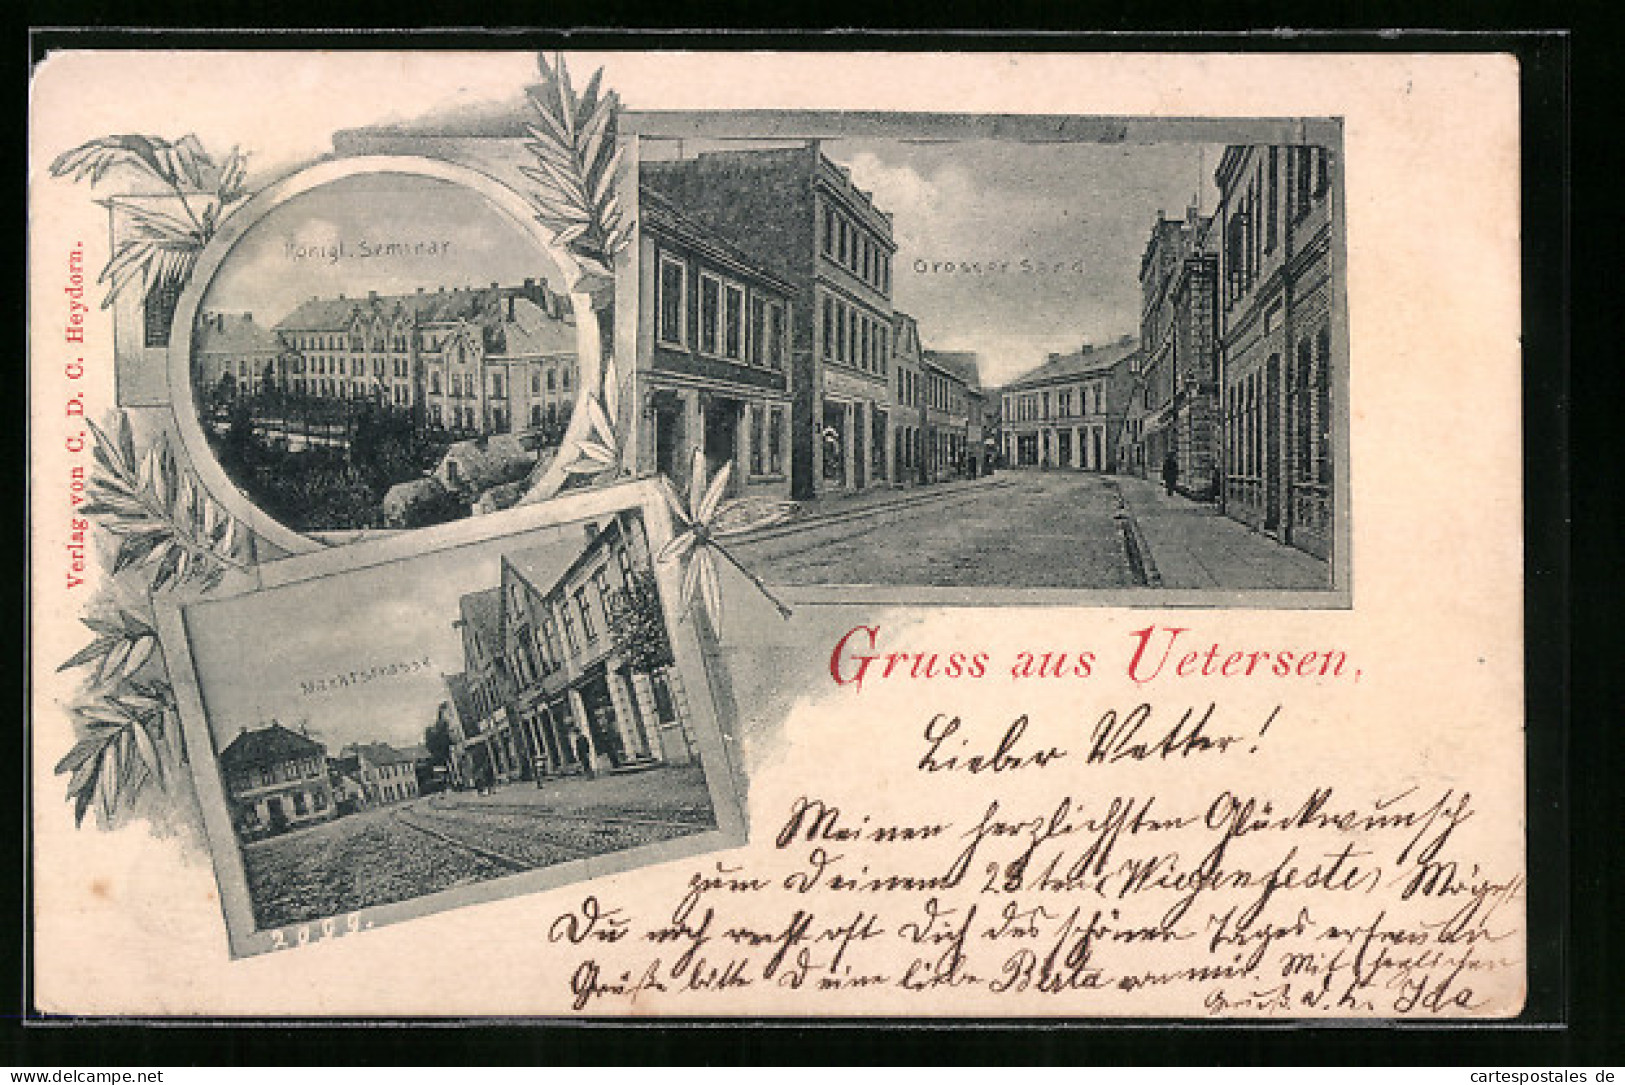 Verlag von C. D. C. Heydorn.
Königl. Seminar.
Grosser Sand
Marktstrasse
2000.
Gruss aus Uetersen.
Lieber Vetter!
Meinen herzlichsten Glückwunsch
zum Deinem 23ten Wiegenfeste, Mögest
Du noch recht oft Dich des schönen Tages erfreuen
Grüße bitte Deine liebe Berta von mir. Mit herzlichen
Gruß Ida
cartespostales de